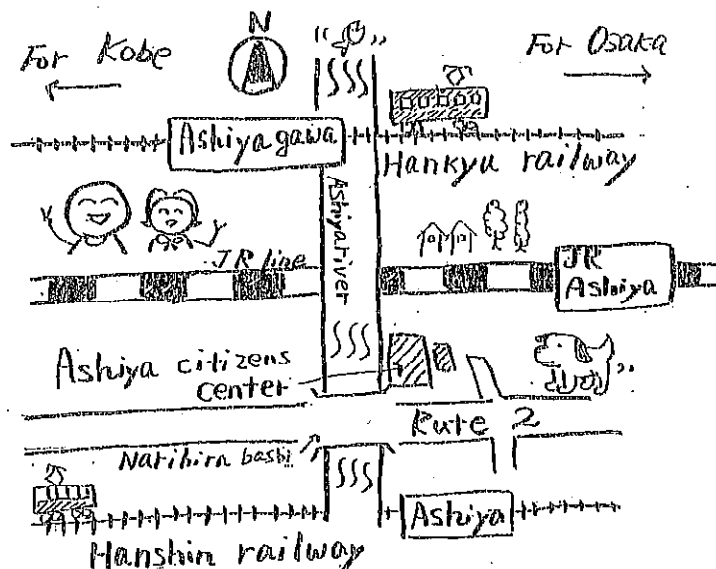 For Kobe
N
For Osaka
Ashiyagawa
Hankyu railway
Ashiyariver
JR line
JR
Ashiya
Ashiya citizens
center
Rute 2
Narihira bashi
Ashiya
Hanshin railway